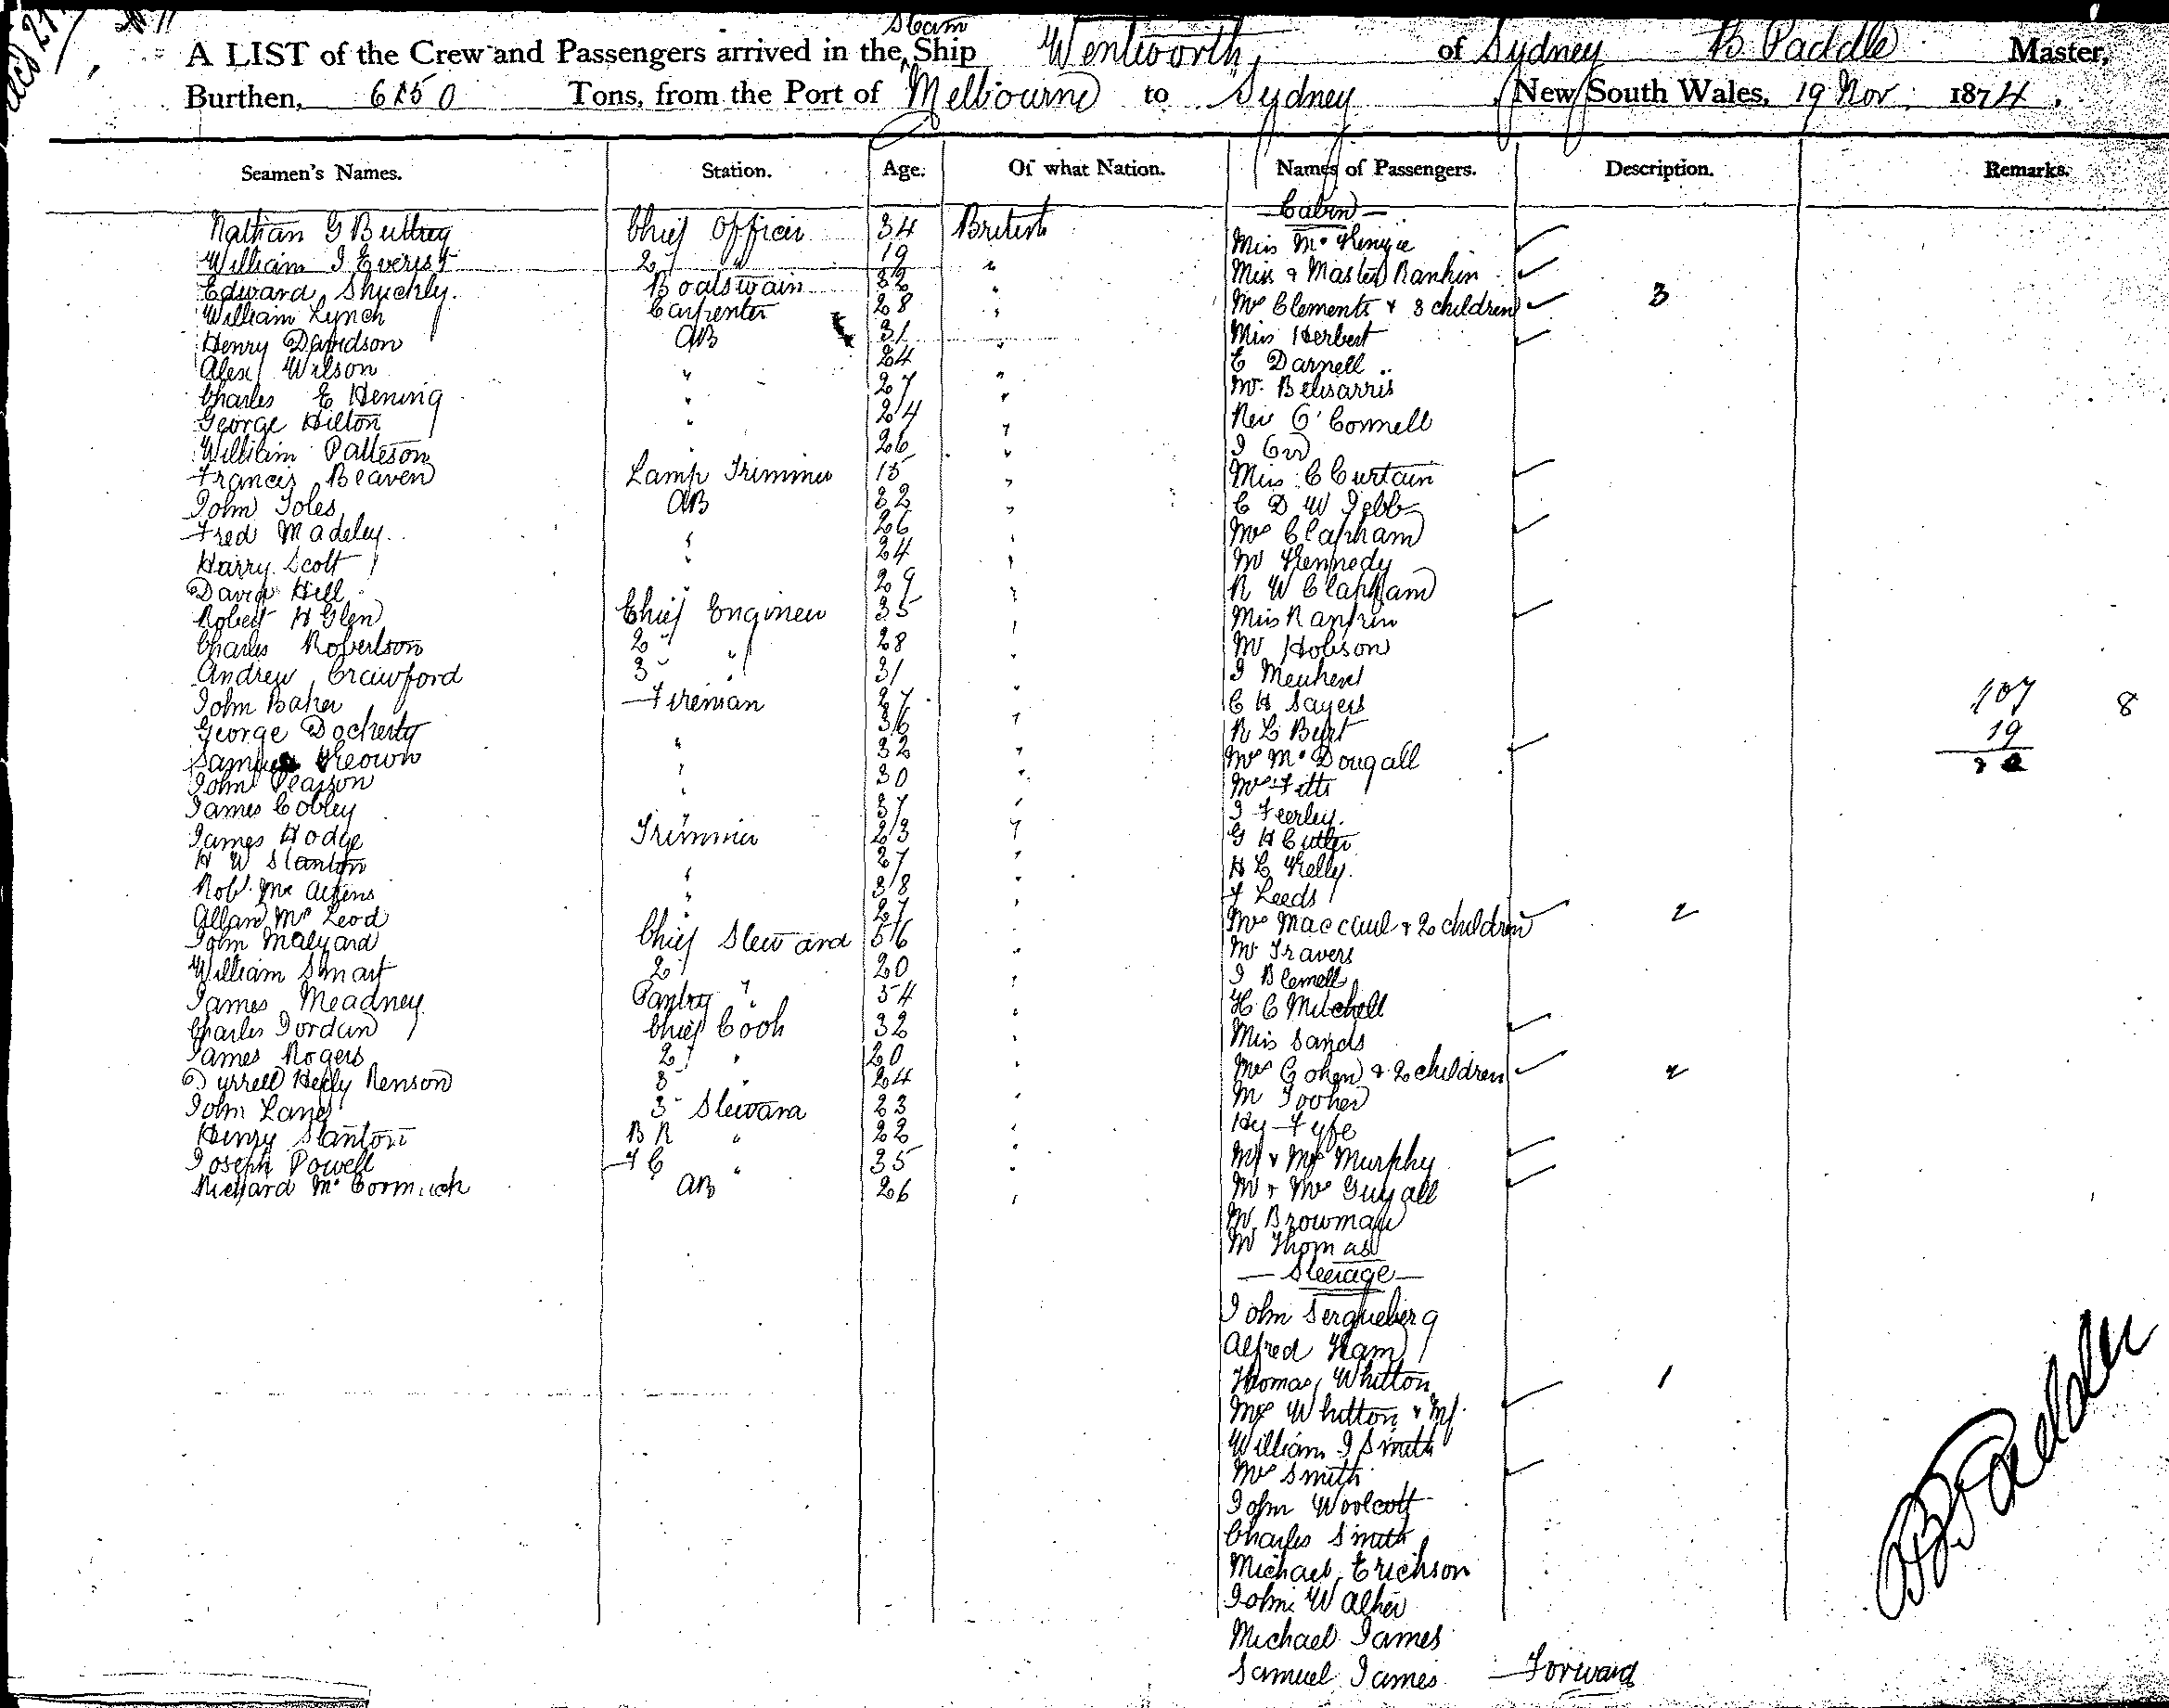 Steam
A LIST of the Crew and Passengers arrived in the Ship Wentworth, of Sydney B Paddle Master,
Burthen, 6150 Tons, from the Port of Melbourne to Sydney New South Wales, 19 Nov. 1874.
Seamen's Names. Station. Age. Of what Nation. Names of Passengers. Description. Remarks.
Cabin
Nathan G Buttrey Chief Officer 34 British Miss Mc Kenzie
William J Everist 2 " 19 " Miss & Master Rankin
Edward Shuckly. Boatswain 32 " Mrs Clements & 3 children 3
William Lynch Carpenter 28 " Miss Herbert
Henry Davidson AB 31 " E Darnell
Alex Wilson " 24 " Mr. Belisarris
Charles E Hening " 27 " Rev O'Connell
George Hilton " 24 " J Orr
William Patteson " 26 " Miss C Curtain
Francis Beaven Lamp Trimmer 15 " C D W Jebb
John Toles AB 32 " Mrs Clapham
Fred Madeley " 26 " Mr Kennedy
Harry Scott " 24 " R W Clapham
David Hill " 29 " Miss Rankin
Robert H Glen Chief Engineer 35 " Mr Hobson
Charles Robertson 2 " 28 " J
Andrew Crawford 3 " 31 " C H Sayers
John Baker Fireman 27 " R L Burt 107 8
George Docherty " 36 " Mrs McDougall 19
Samuel Keown " 32 " Mrs Fitts
John Pearson " 30 " J Feerley.
James Cobley " 37 " G H Cutler
James Hodge Trimmer 23 " H L Kelly.
H W Stanton " 27 " F Leeds
Robt. Mc Atkins " 38 " Mrs Maccaul & 2 children 2
Allan Mc Leod " 27 " Mr Travers
John Malyard Chief Steward 56 " J Blemell
William Smart 2 " 20 " H. C Mitchell
James Meadney Pantry " 34 " Miss Sands
Charles Jordan Chief Cook 32 " Mrs Cohen & 2 children 2
James Rogers 2 " 20 " Mr Tooher
Tyrrell Henly Renson 3 " 24 " Hy Fyfe
John Lang 3 Steward 23 " Mr & Mrs Murphy
Henry Stanton B R " 22 " Mr & Mrs Guyall
Joseph Powell F C " 35 " Mr Browman
Richard Mc Cormick AB 26 " Mr Thomas
Steerage
John Sergueberg
Alfred Ham
Thomas Whitton 1
Mrs Whitton & Inf.
William J Smith
Mrs Smith
John Woolcott
Charles Smith
Michael Erichson
John Walker
Michael James
Samuel James Forward
B Paddle